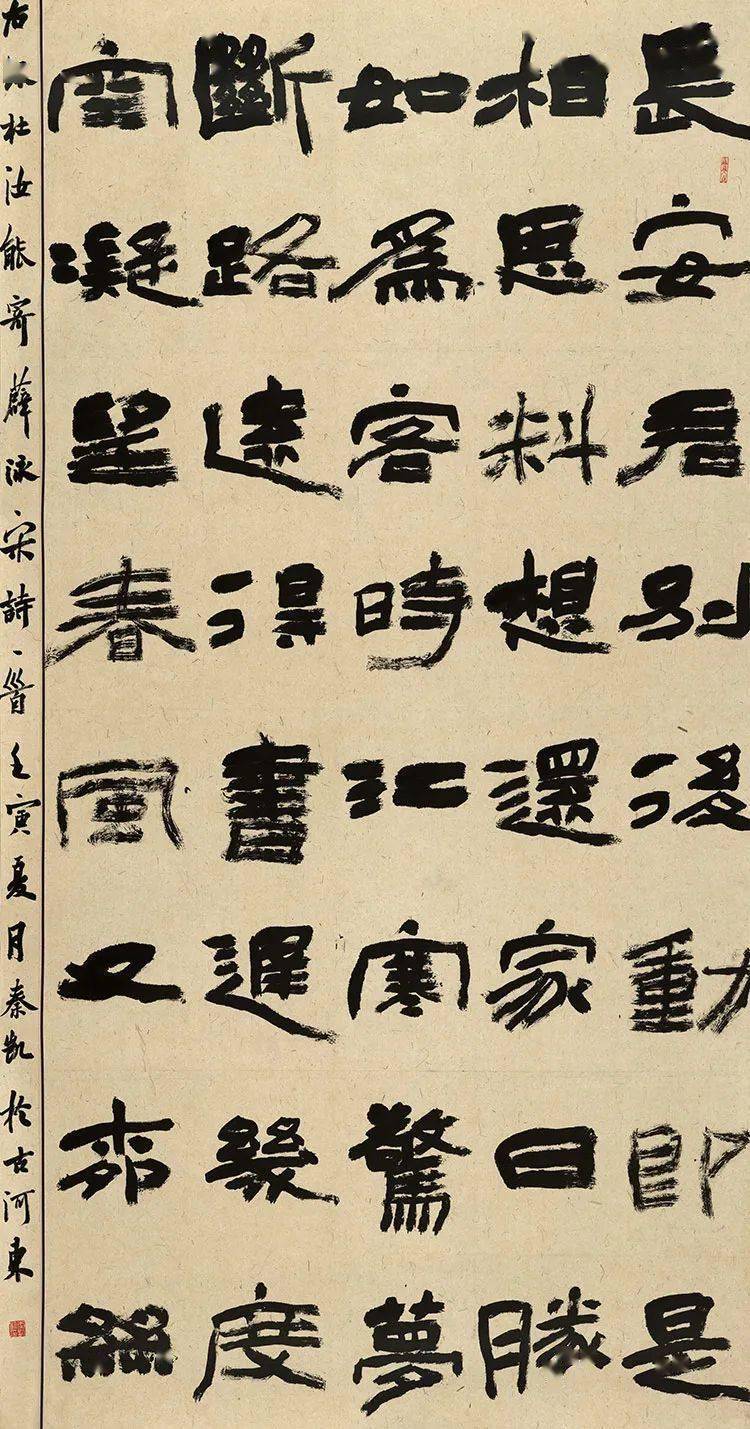 長安君別後動即是
相思料想還家日勝
如爲客時江寒驚夢
斷路遠得書遲幾度
空凝望春風又桺絲
右杜汝能寄薛泳宋詩一首壬寅夏月秦凱於古河東